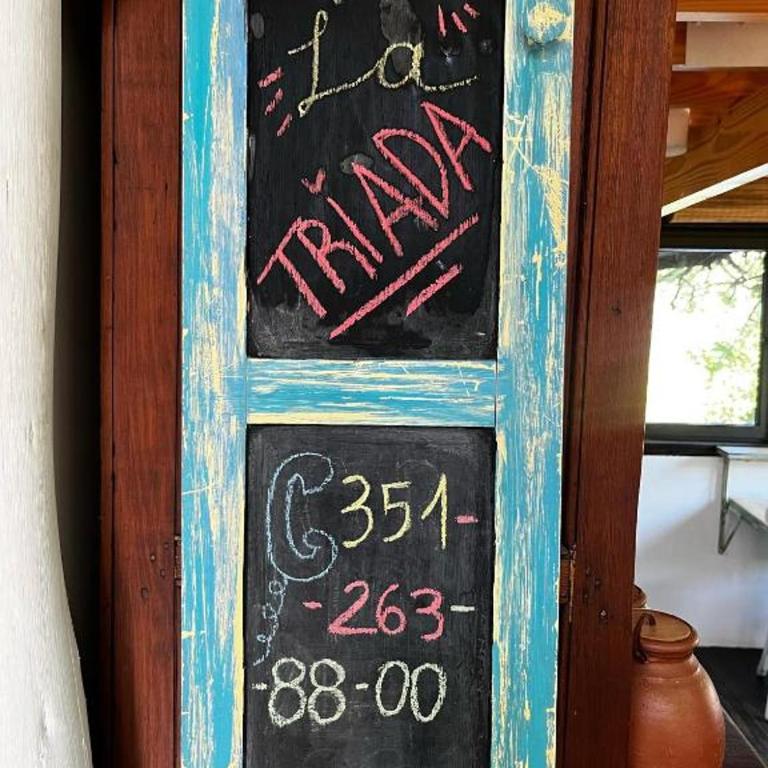 La
TRiADA
351-
-263-
-88-00